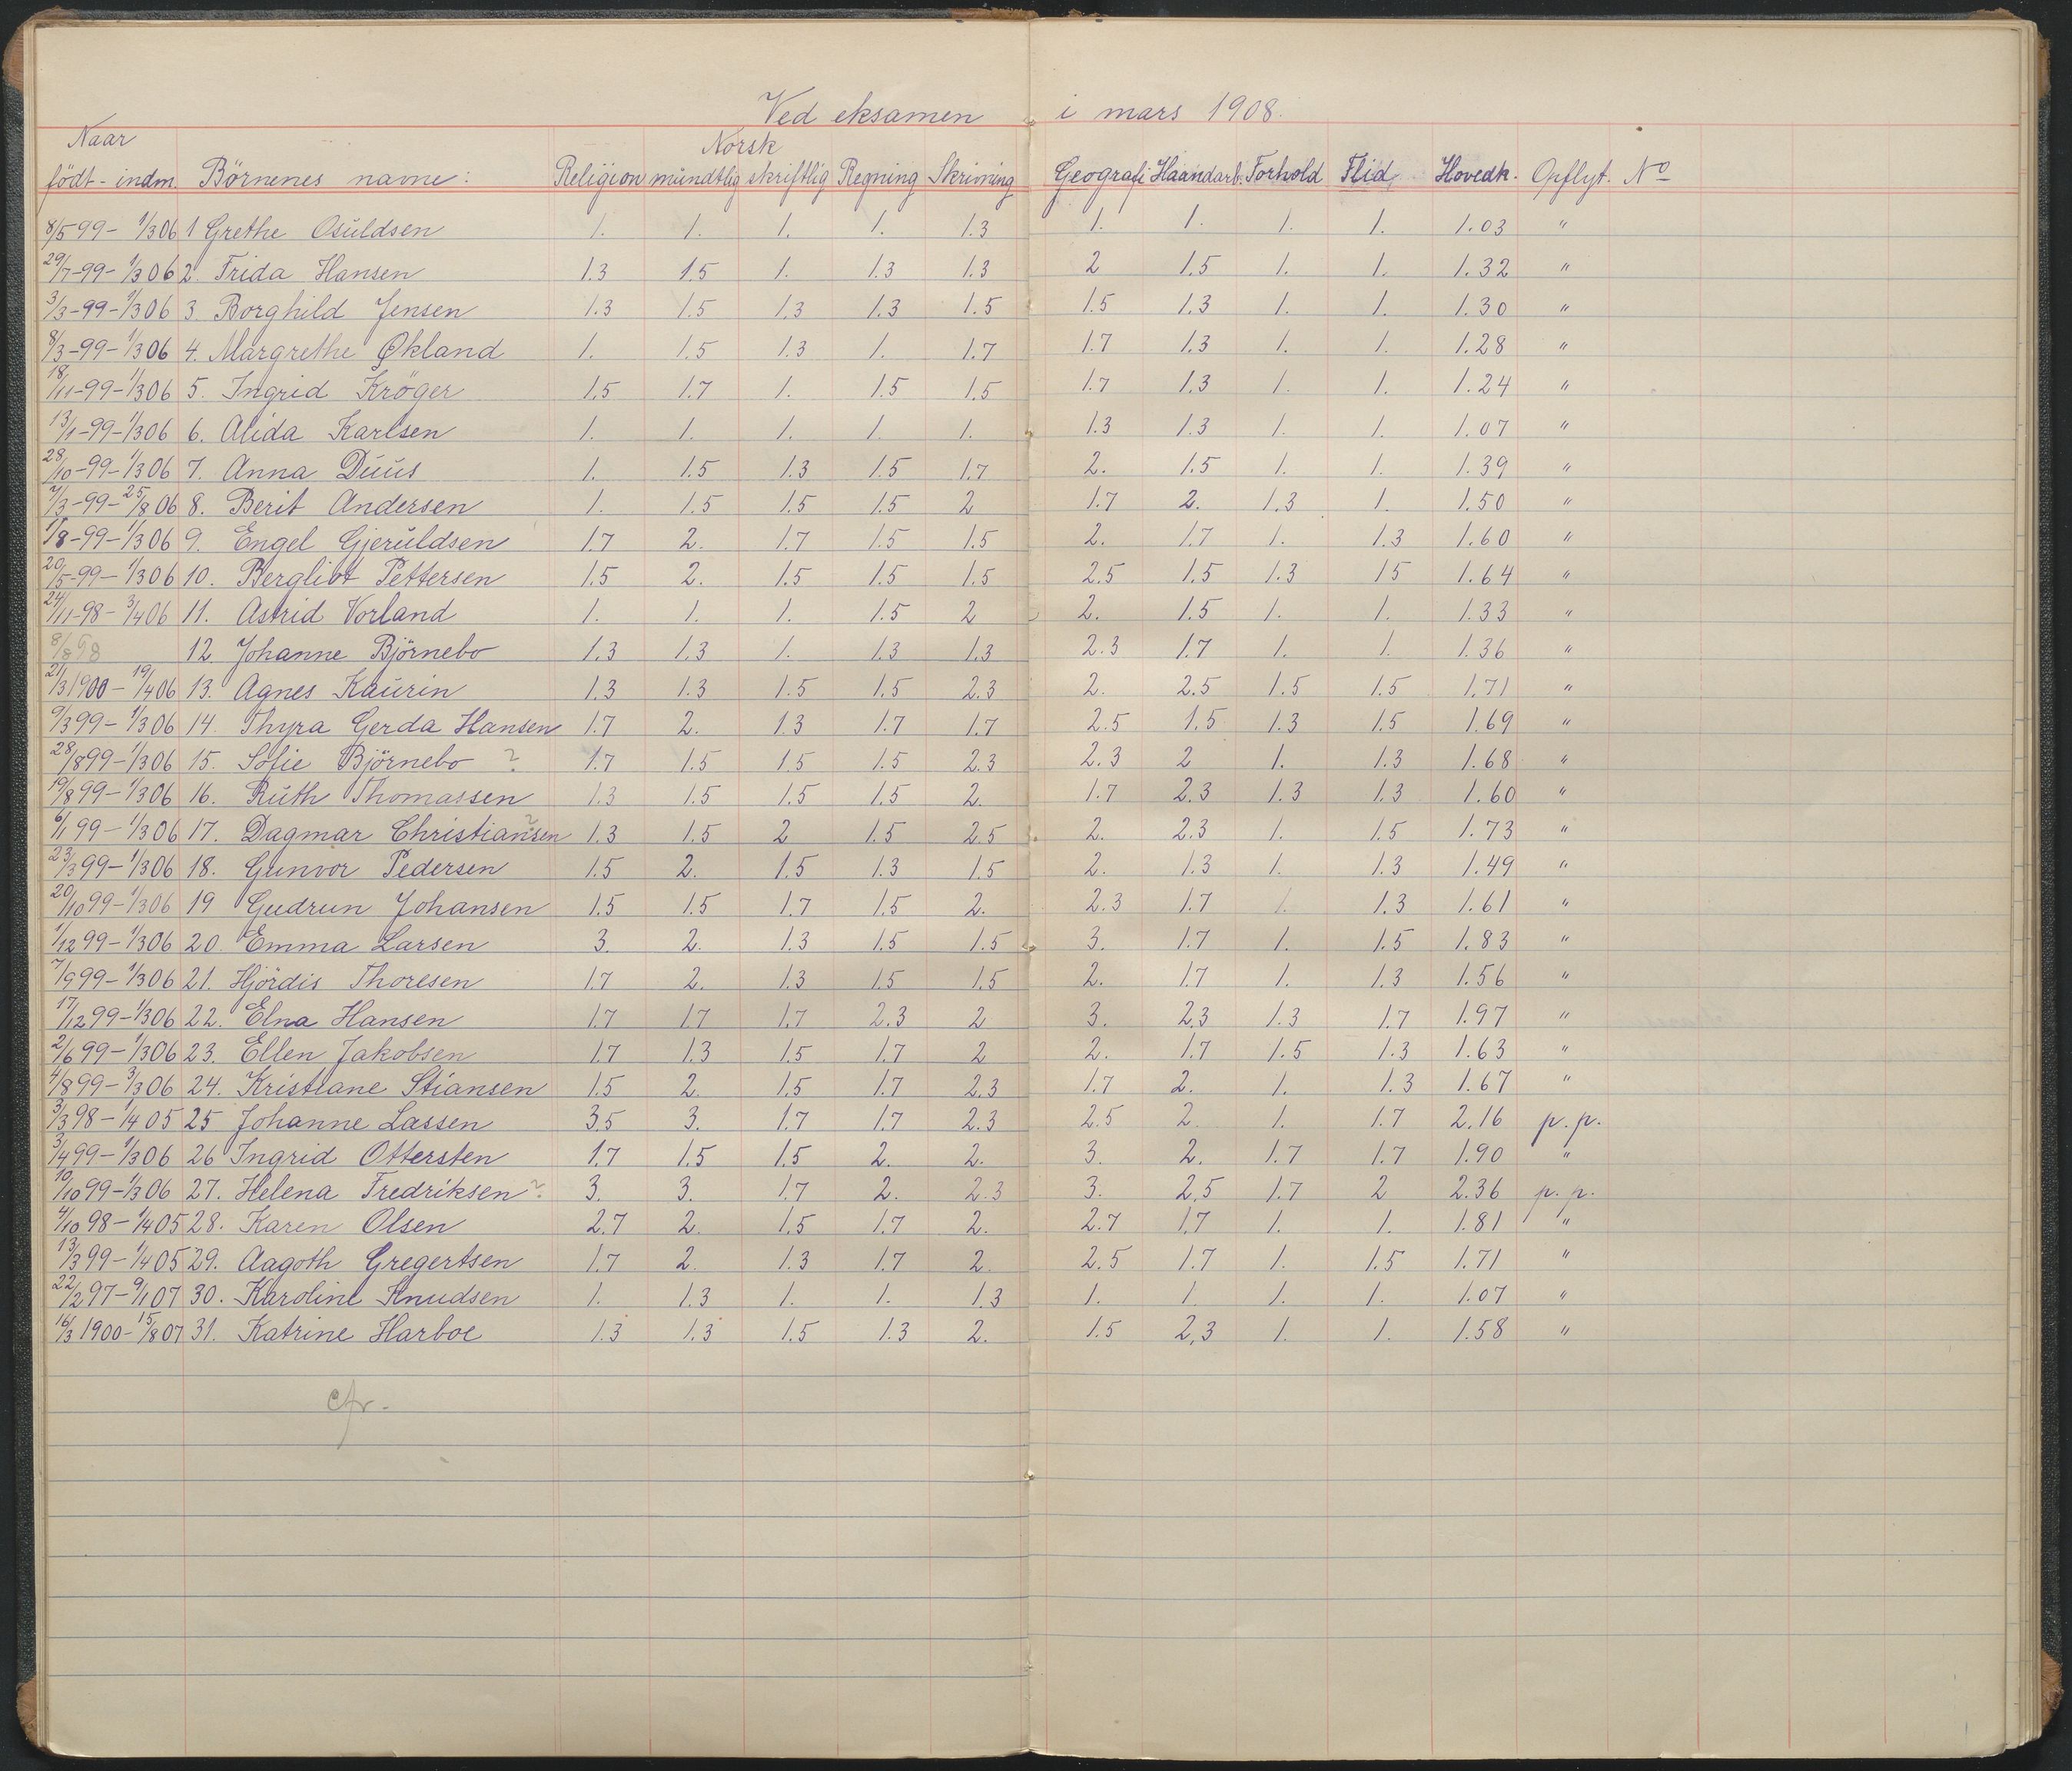 Ved eksamen i mars 1908.
Naar Norsk
födt - indm. Börnenes navne: Religion mündtlig skriftlig Regning Skrivning Geografi Haandarb. Forhold Flid Hovedk. Opflyt. No
8/5 99 - 1/3 06 1 Grethe Osüldsen 1. 1. 1. 1. 1.3 1. 1. 1. 1. 1.03 "
29/7-99-1/3 06 2. Frida Hansen 1.3 1.5 1. 1.3 1.3 2 1.5 1. 1. 1.32 "
3/3-99-1/3 06 3. Borghild Jensen 1.3 1.5 1.3 1.3 1.5 1.5 1.3 1. 1. 1.30 "
8/3-99-1/3 06 4. Margrethe Økland 1. 1.5 1.3 1. 1.7 1.7 1.3 1. 1. 1.28 "
18/11-99-1/3 06 5. Ingrid Kröger 1.5 1.7 1. 1.5 1.5 1.7 1.3 1. 1. 1.24 "
13/1-99-1/3 06 6. Alida Karlsen 1. 1. 1. 1. 1. 1.3 1.3 1. 1. 1.07 "
28/10-99-1/3 06 7. Anna Düüs 1. 1.5 1.3 1.5 1.7 2. 1.5 1. 1. 1.39 "
7/3-99-25/8 06 8. Berit Andersen 1. 1.5 1.5 1.5 2 1.7 2. 1.3 1. 1.50 "
1/8-99-1/3 06 9. Engel Gjerüldsen 1.7 2. 1.7 1.5 1.5 2. 1.7 1. 1.3 1.60 "
20/5-99-1/3 06 10. Bergliot Pettersen 1.5 2. 1.5 1.5 1.5 2.5 1.5 1.3 15 1.64 "
24/11-98-3/4 06 11. Astrid Vorland 1. 1. 1. 1.5 2 2. 1.5 1. 1. 1.33 "
8/8 98 12. Johanne Björnebo 1.3 1.3 1. 1.3 1.3 2.3 1.7 1. 1. 1.36 "
21/3 1900 - 19/4 06 13. Agnes Kaürin 1.3 1.3 1.5 1.5 2.3 2. 2.5 1.5 1.5 1.71 "
9/3 99 - 1/3 06 14. Thyra Gerda Hansen 1.7 2. 1.3 1.7 1.7 2.5 1.5 1.3 1.5 1.69 "
28/8 99-1/3 06 15. Sofie Björnebo ? 1.7 1.5 1.5 1.5 2.3 2.3 2 1. 1.3 1.68 "
19/8 99-1/3 06 16. Rüth Thomassen 1.3 1.5 1.5 1.5 2. 1.7 2.3 1.3 1.3 1.60 "
6/1 99 - 1/3 06 17. Dagmar Christiansen ? 1.3 1.5 2 1.5 2.5 2. 2.3 1. 1.5 1.73 "
23/3 99-1/3 06 18. Gunvor Pedersen 1.5 2. 1.5 1.3 1.5 2. 1.3 1. 1.3 1.49 "
20/10 99-1/3 06 19 Gudrun Johansen 1.5 1.5 1.7 1.5 2. 2.3 1.7 1. 1.3 1.61 "
1/12 99-1/3 06 20. Emma Larsen 3. 2. 1.3 1.5 1.5 3. 1.7 1. 1.5 1.83 "
7/9 99-1/3 06 21. Hjördis Thoresen 1.7 2. 1.3 1.5 1.5 2. 1.7 1. 1.3 1.56 "
17/12 99-1/3 06 22. Elna Hansen 1.7 1.7 1.7 2.3 2 3. 2.3 1.3 1.7 1.97 "
2/6 99-1/3 06 23. Ellen Jakobsen 1.7 1.3 1.5 1.7 2 2. 1.7 1.5 1.3 1.63 "
4/8 99-3/3 06 24. Kristiane Stiansen 1.5 2. 1.5 1.7 2.3 1.7 2. 1. 1.3 1.67 "
3/3 98-1/4 05 25 Johanne Lassen 3.5 3. 1.7 1.7 2.3 2.5 2. 1. 1.7 2.16 p.p.
3/4 99-1/3 06 26 Ingrid Ottersten 1.7 1.5 1.5 2. 2. 3. 2. 1.7 1.7 1.90 "
10/10 99-1/3 06 27. Helena Fredriksen ? 3. 3. 1.7 2. 2.3 3. 2.5 1.7 2 2.36 p.p.
4/10 98-1/4 05 28. Karen Olsen 2.7 2. 1.5 1.7 2. 2.7 1.7 1. 1. 1.81 "
13/3 99-1/4 05 29. Aagoth Gregertsen 1.7 2. 1.3 1.7 2. 2.5 1.7 1. 1.5 1.71 "
22/2 97-9/1 07 30. Karoline Knudsen 1. 1.3 1. 1. 1.3 1. 1. 1. 1. 1.07 "
16/3 1900-15/8 07 31. Katrine Harboe 1.3 1.3 1.5 1.3 2. 1.5 2,3 1. 1. 1.58 "
cfr.